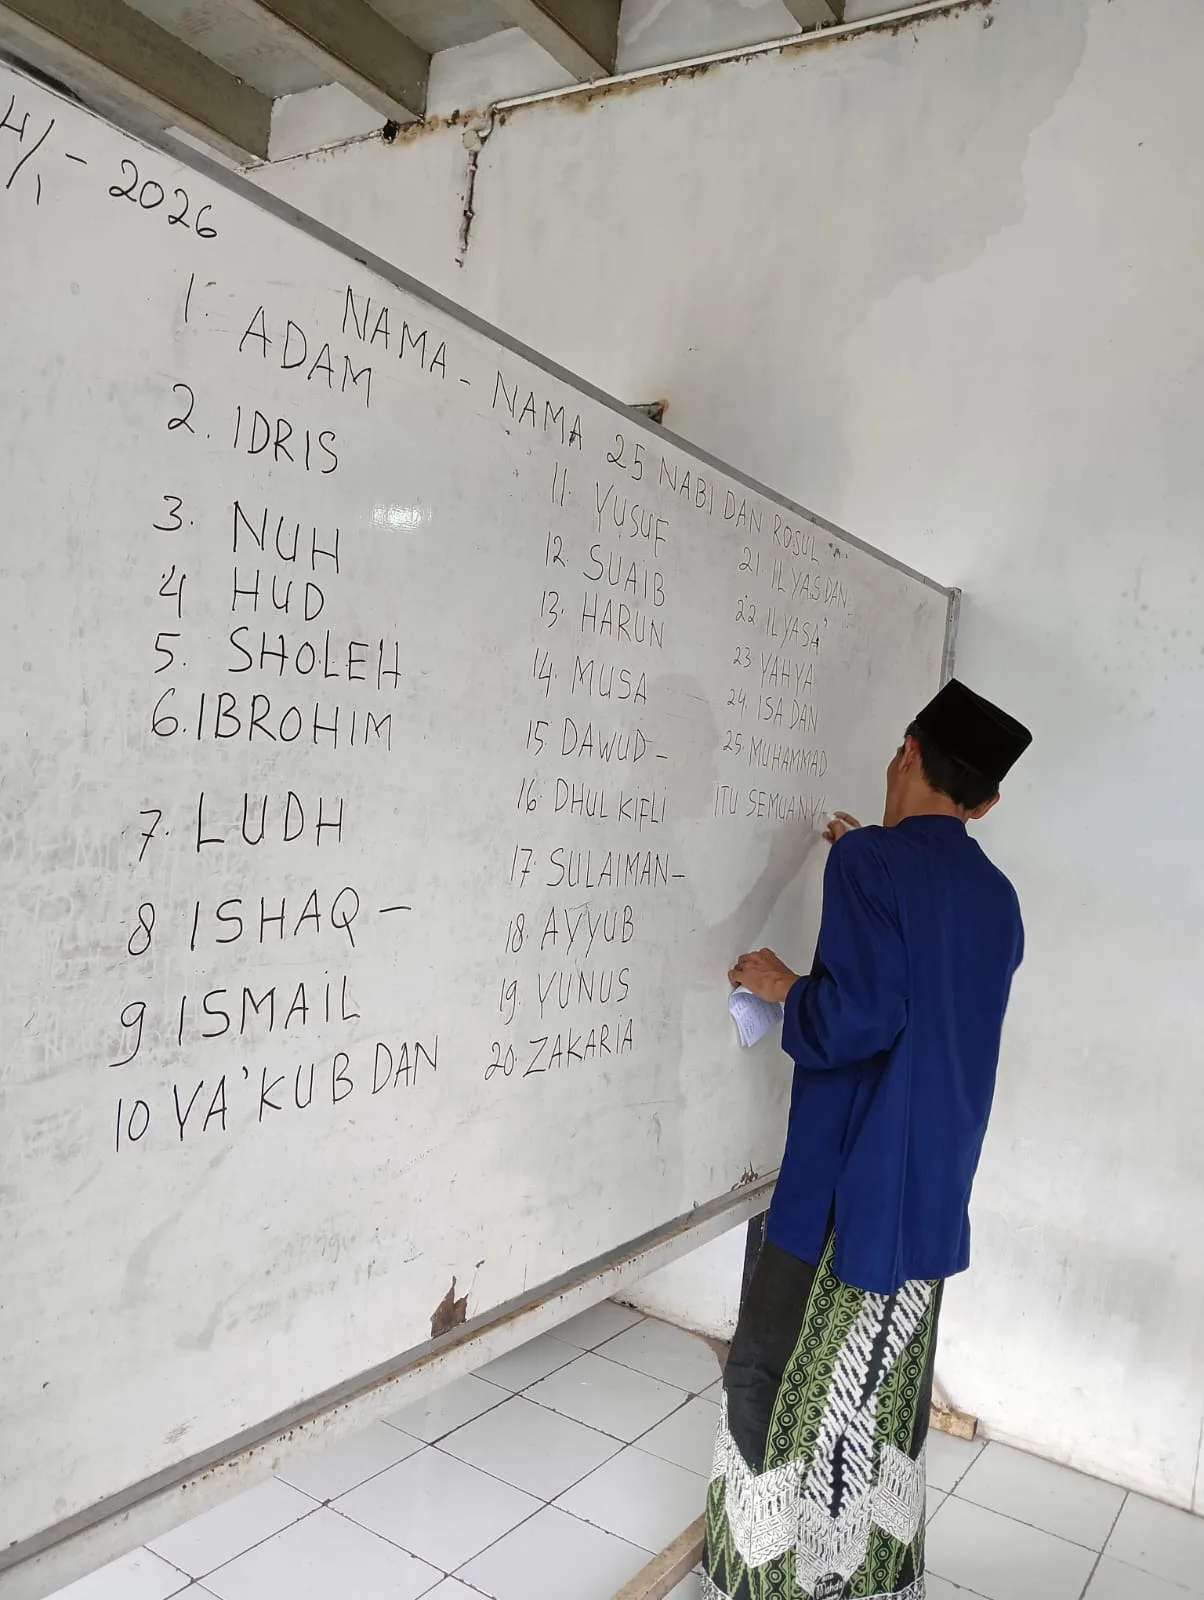 4/1 - 2026
NAMA - NAMA 25 NABI DAN ROSUL
1. ADAM
2. IDRIS
3. NUH
4 HUD
5. SHOLEH
6. IBROHIM
7. LUDH
8 ISHAQ -
9 ISMAIL
10 YA'KUB DAN
11. YUSUF
12. SUAIB
13. HARUN
14. MUSA
15. DAWUD -
16. DHUL KIFLI
17. SULAIMAN -
18. AYYUB
19. YUNUS
20. ZAKARIA
21 ILYAS DAN
22 ILYASA'
23 YAHYA
24. ISA DAN
25. MUHAMMAD
ITU SEMUANY